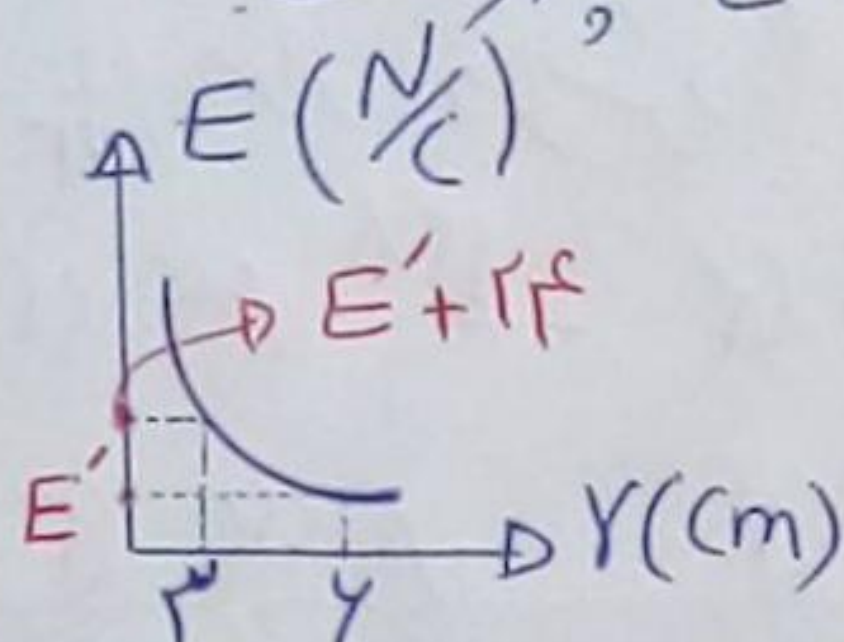 E (N/C)
E′ + ۲۴
E′
r(Cm)
۳ ۶